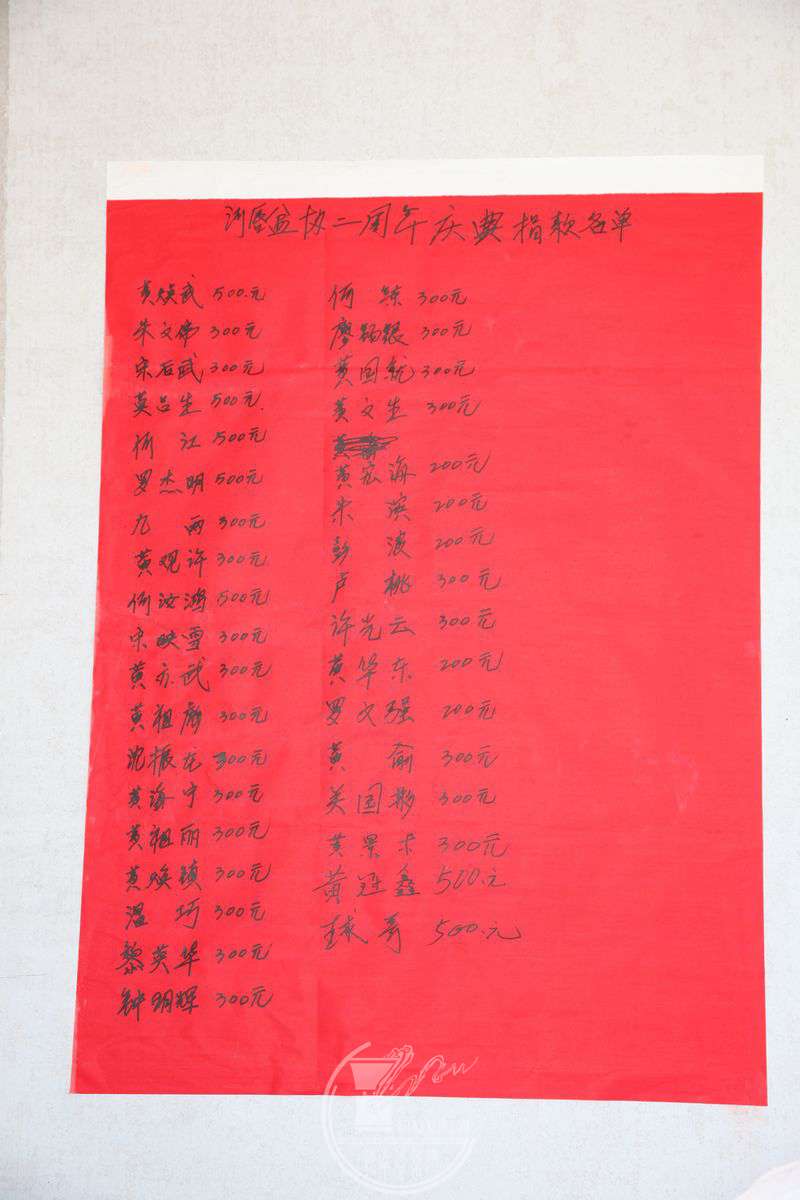 协二周年庆典捐款名单
黄焕武 500.元
朱文伟 300元
宋后武 300元
莫吕生 500元
何江 500元
罗杰明 500元
九两 300元
黄观许 300元
何汝鸿 500元
宋映雪 300元
黄亦武 300元
黄祖 300元
沈振龙 300元
黄海宁 300元
黄祖丽 300元
黄焕镇 300元
温巧 300元
黎英华 300元
钟明辉 300元
何 300元
廖银 300元
黄国统 300元
黄文生 300元
黄宏海 200元
宋滨 200元
彭波 200元
卢桃 300元
许光云 300元
黄华东 200元
罗文强 200元
黄俞 300元
吴国彬 300元
黄景 300元
黄冠鑫 500.元
球哥 500.元